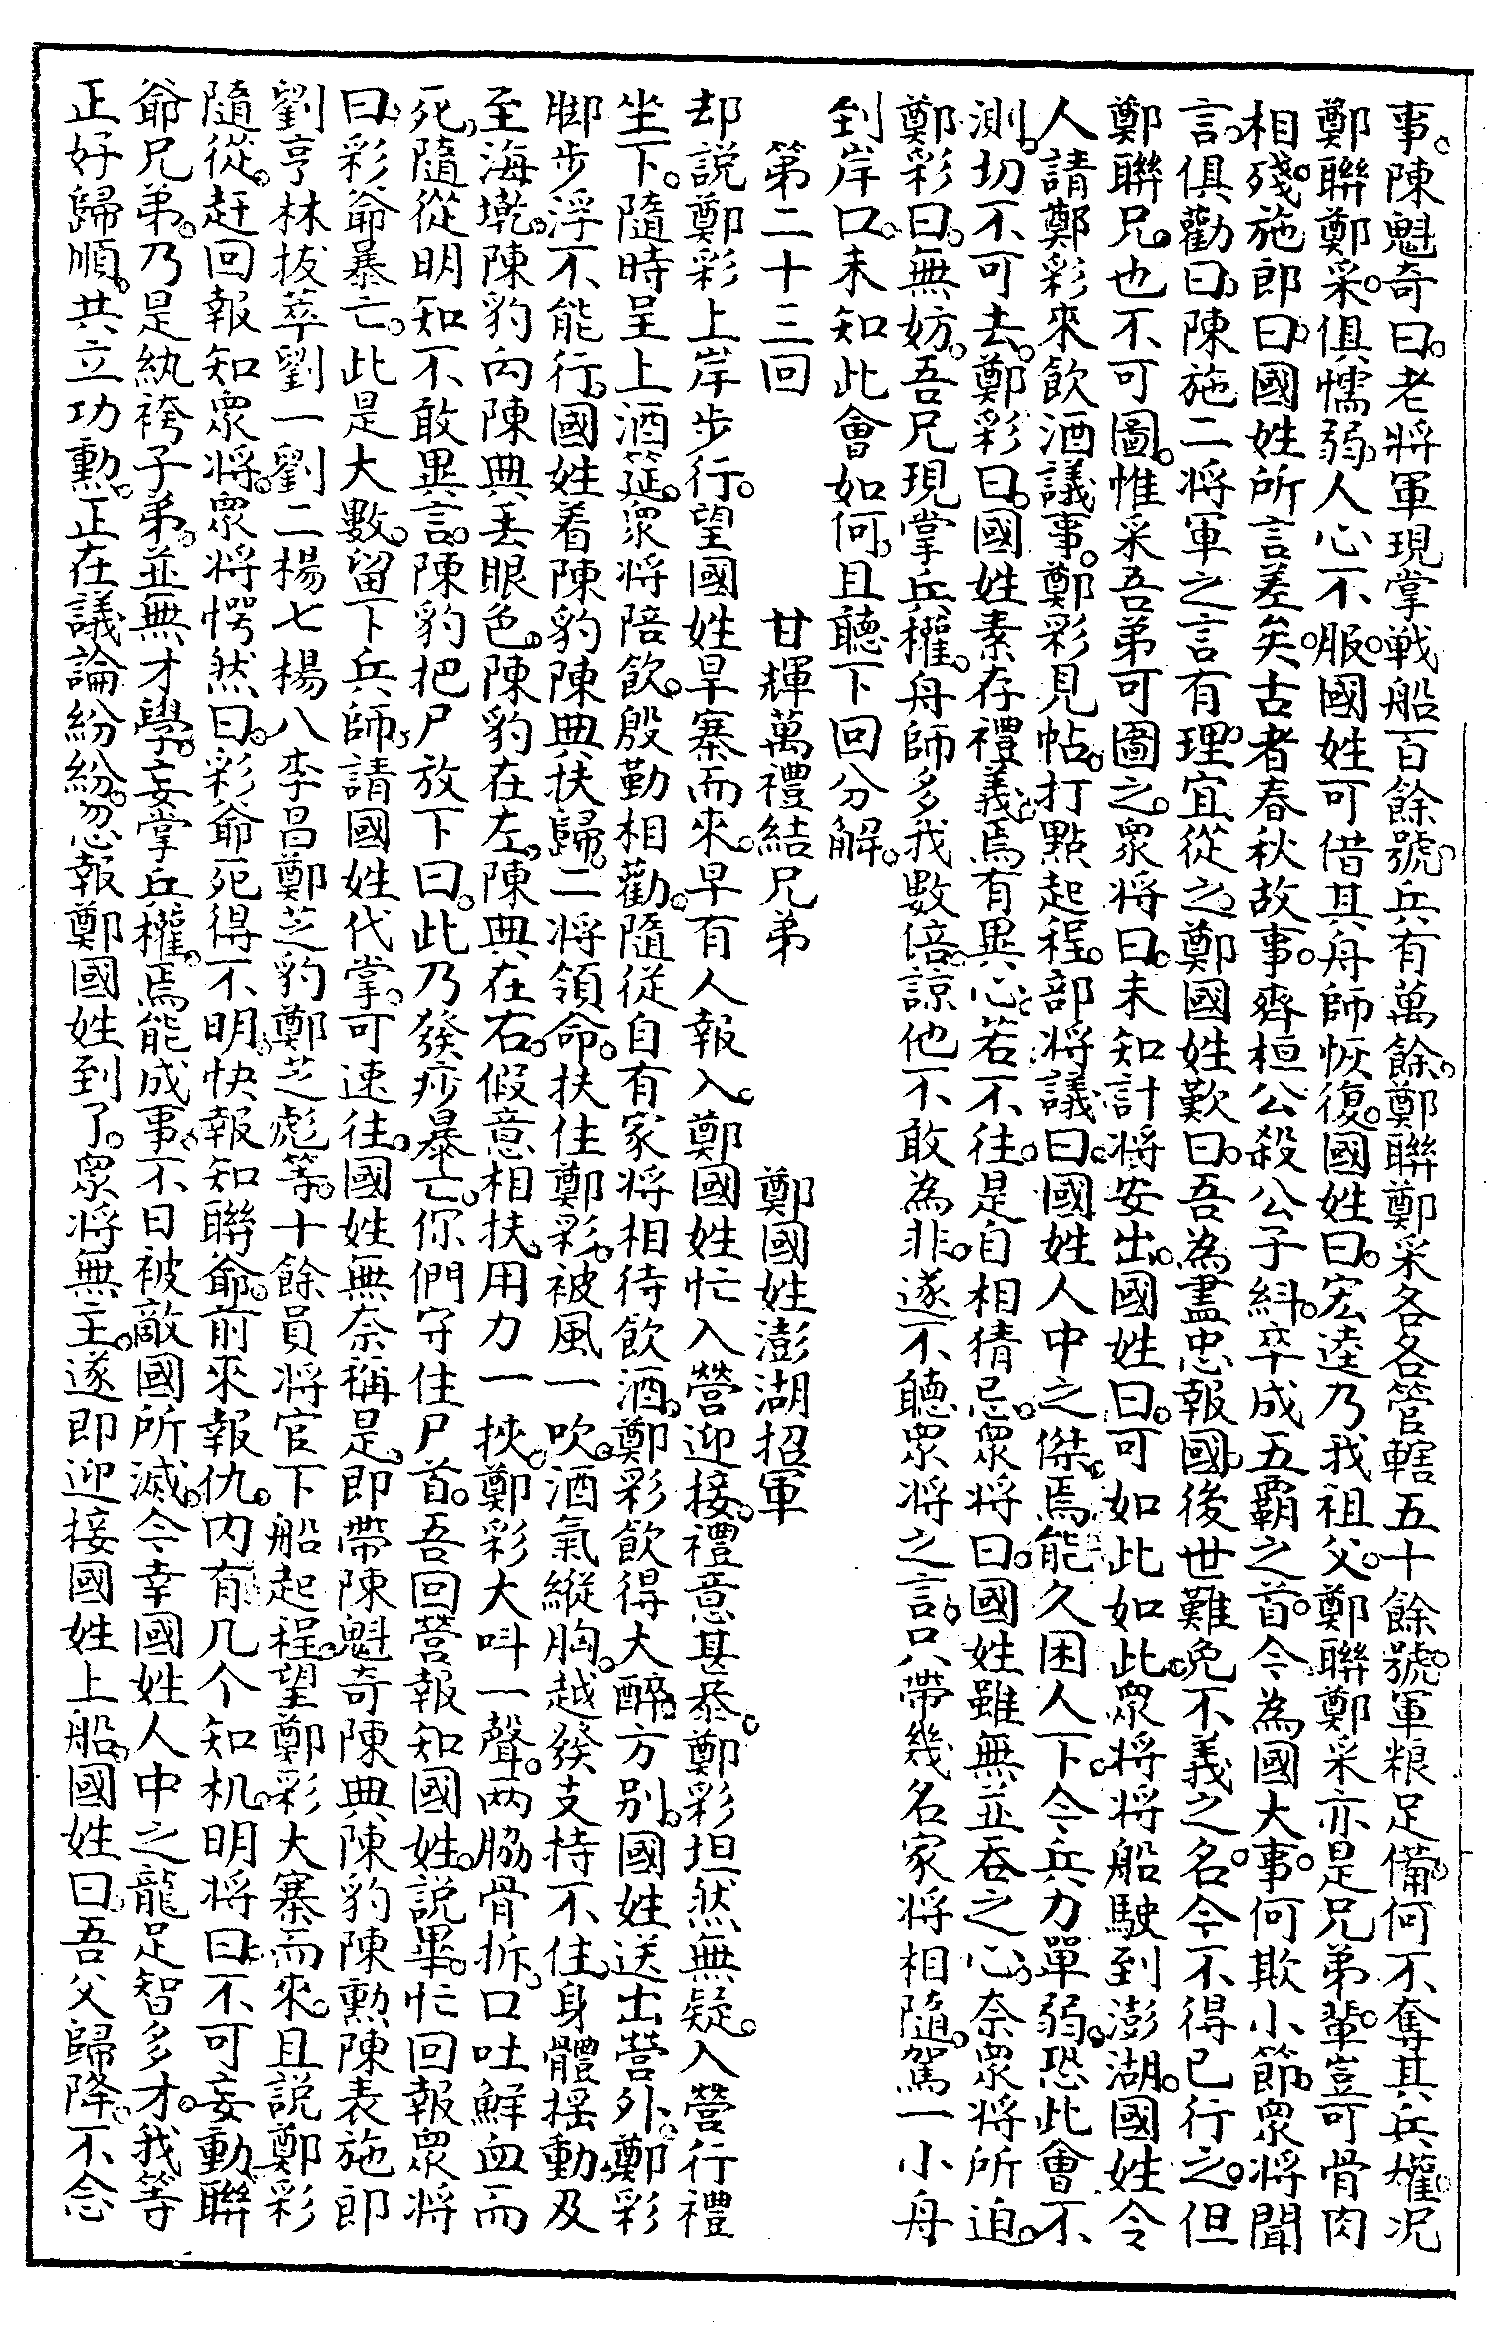 事。陳魁奇曰。老將軍現掌戰船百餘號。兵有萬餘。鄭聯鄭采各各管轄五十餘號。軍粮足備。何不奪其兵權。况
鄭聯鄭采。俱懦弱。人心不服。國姓可借其舟師恢復。國姓曰。宏逵乃我祖父。鄭聯鄭采亦是兄弟輩。豈可骨肉
相殘。施郎曰。國姓所言差矣。古者春秋故事。齊桓公殺公子糾。卒成五霸之首。今為國大事。何欺小節。眾將聞
言。俱勸曰。陳施二將軍之言有理。宜從之。鄭國姓歎曰。吾為盡忠報國。後世難免不義之名。今不得已行之。但
鄭聯兄也不可圖。惟采吾弟可圖之。眾將曰。未知計將安出。國姓曰。可如此如此。眾將將船駛到澎湖。國姓令
人請鄭彩來飲酒議事。鄭彩見帖。打點起程。部將議曰。國姓人中之傑。焉能久困人下。今兵力單弱。恐此會不
測。切不可去。鄭彩曰。國姓素存禮義。焉有異心。若不往。是自相猜忌。眾將曰。國姓雖無並吞之心。奈眾將所迫。
鄭彩曰。無妨。吾兄現掌兵權。舟師多我數倍。諒他不敢為非。遂不聽眾將之言。只帶幾名家將相隨。駕一小舟
到岸口。未知此會如何。且聽下回分解。
第二十三回　甘輝萬禮結兄弟　鄭國姓澎湖招軍
却說鄭彩上岸步行。望國姓旱寨而來。早有人報入。鄭國姓忙入營迎接。禮意甚恭。鄭彩坦然無疑。入營行禮
坐下。隨時呈上酒筵。眾將陪飲。殷勤相勸。隨從自有家將相待飲酒。鄭彩飲得大醉。方别。國姓送出營外。鄭彩
脚步浮不能行。國姓着陳豹陳典扶歸。二將領命。扶住鄭彩。被風一吹。酒氣縱胸。越發支持不住。身體搖動。及
至海墘。陳豹向陳典丟眼色。陳豹在左。陳典在右。假意相扶。用力一挾。鄭彩大叫一聲。两脇骨折。口吐鮮血而
死。隨從明知不敢異言。陳豹把尸放下曰。此乃發痧暴亡。你們守住尸首。吾回營報知國姓。說畢。忙回報眾將
曰。彩爺暴亡。此是大數。留下兵師。請國姓代掌。可速往。國姓無奈稱是。即帶陳魁奇陳典陳豹陳勲陳表施郎
劉亨林拔萃劉一劉二楊七楊八李昌鄭芝豹鄭芝彪等。十餘員將官下船起程。望鄭彩大寨而來。且說鄭彩
隨從。赶回報知眾將。眾將愕然曰。彩爺死得不明。快報知聯爺。前來報仇。内有几个知机。明將曰。不可妄動。聯
爺兄弟。乃是紈袴子弟。並無才學。妄掌兵權。焉能成事。不日被敵國所滅。今幸國姓人中之龍。足智多才。我等
正好歸順。共立功勲。正在議論紛紛。忽報鄭國姓到了。眾將無主。遂即迎接國姓上船。國姓曰。吾父歸降。不念